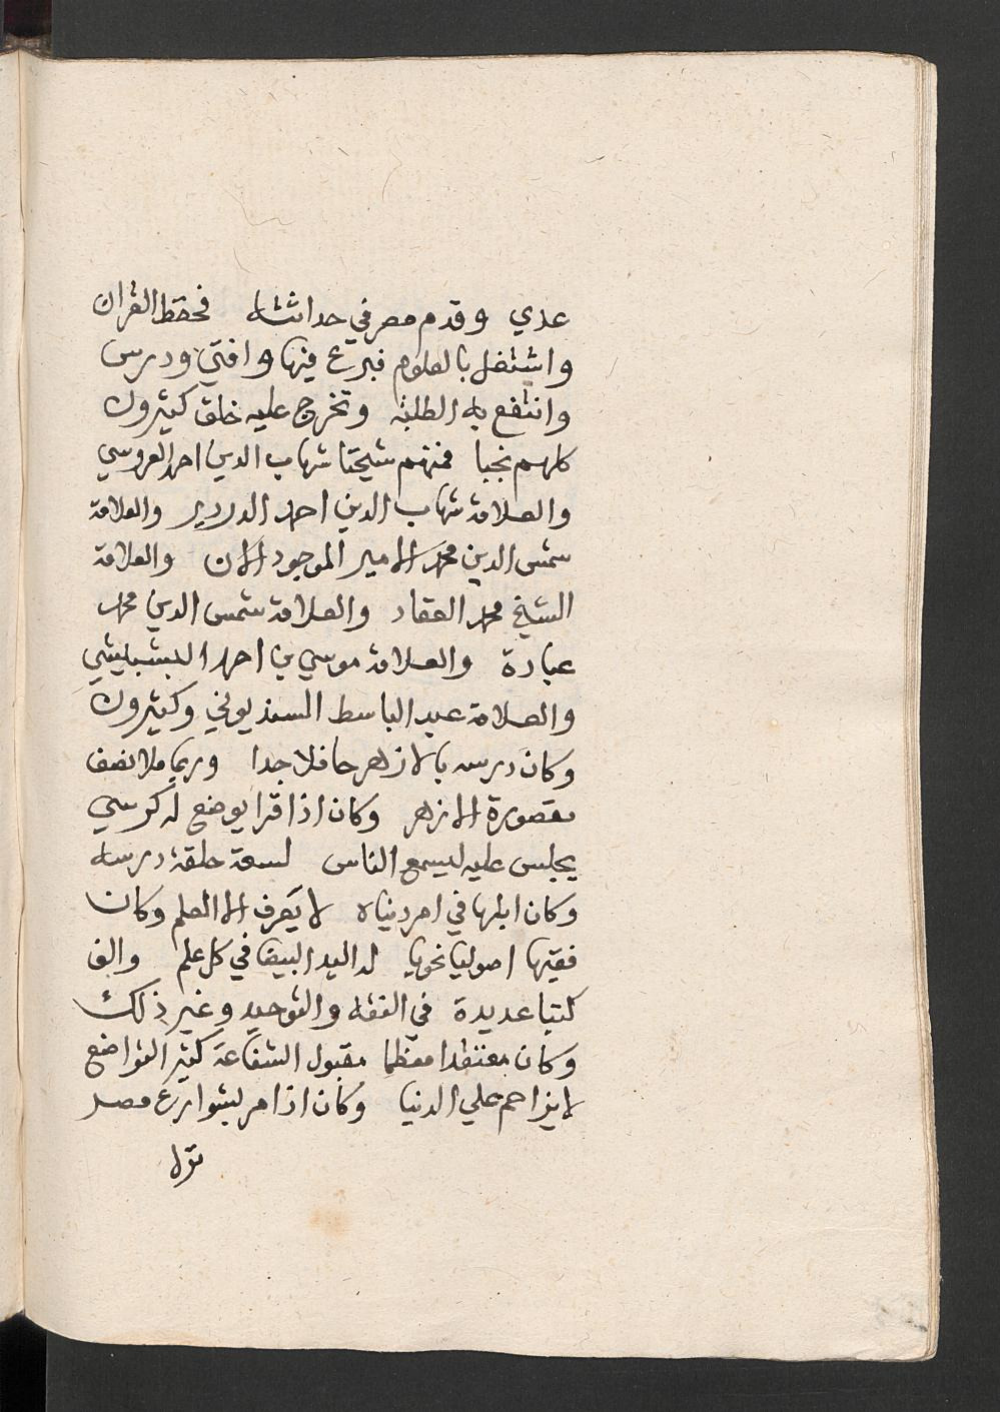 عدي وقدم مصر في حداثته فحفظ القران
واشتغل بالعلوم فبرع فيها وافتي ودرس
وانتفع به الطلبة وتخرج عليه خلق كثيرون
كلهم نجبا فمنهم شيخنا شهاب الدين احمد العروسي
والعلامة شهاب الدين احمد الدردير والعلامة
شمس الدين محمد الامير الموجود الان والعلامة
الشيخ محمد العقاد والعلامة شمس الدين محمد
عبادة والعلامة موسي بن احمد البشبيشي
والعلامة عبد الباسط السنديوني وكثيرون
وكان درسه بالازهر حافلا جدا وربما ملا نصف
مقصورة الازهر وكان اذا قرا يوضع له كرسي
يجلس عليه ليسمع الناس لسعة حلقة درسه
وكان ابلها في امر دنياه لا يعرف الا العلم وكان
فقيها اصوليا نحويا له اليد البيضا في كل علم والف
كتبا عديدة في الفقه والتوحيد وغير ذلك
وكان معتقدا معظما مقبول الشفاعة كثير التواضع
لا يزاحم علي الدنيا وكان اذا مر بشوارع مصر